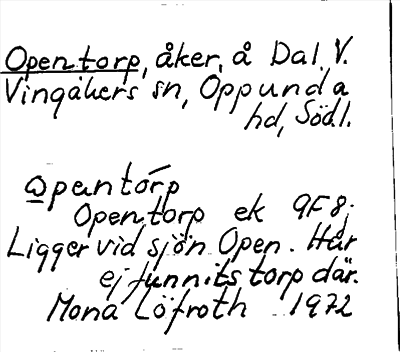 Opentorp, åker, å Dal, V.
Vingåkers sn, Oppunda
hd, Södl.
o̲pentórp
Opentorp ek 9F8j
Ligger vid sjön Open. Har
ej funnits torp där.
Mona Löfroth 1972